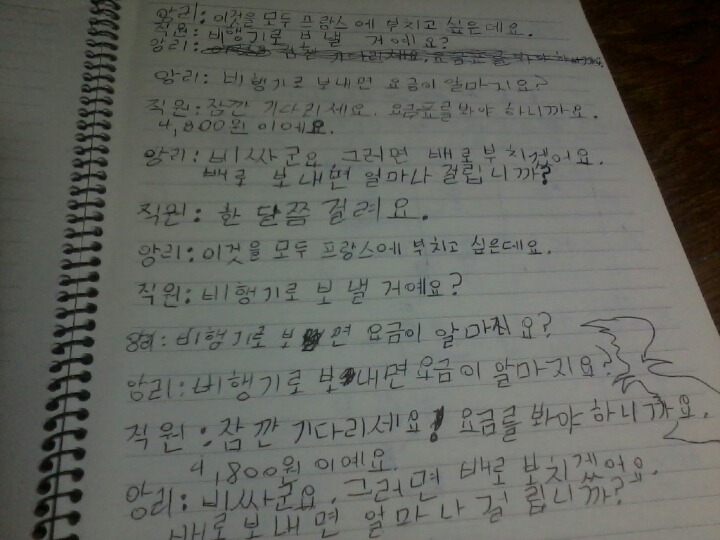 앙리: 이것을 모두 프랑스에 부치고 싶은데요.
직원: 비행기로 보낼 거예요?
앙리: 잠깐 기다리세요. 요금표를 봐야 하니까요.
앙리: 비행기로 보내면 요금이 얼마지요?
직원: 잠깐 기다리세요. 요금표를 봐야 하니까요.
4,800원 이에요.
앙리: 비싸군요. 그러면 배로 부치겠어요.
배로 보내면 얼마나 걸립니까?
직원: 한 달쯤 걸려요.
앙리: 이것을 모두 프랑스에 부치고 싶은데요.
직원: 비행기로 보낼 거예요?
비행기로 보면 요금이 알마지요?
앙리: 비행기로 보내면 요금이 알마지요?
직원: 잠깐 기다리세요! 요금를 봐야 하니까요.
4,800원 이예요.
앙리: 비싸군요. 그러면 배로 보치게쓰어요.
배로 보내면 얼마나 걸립니까?